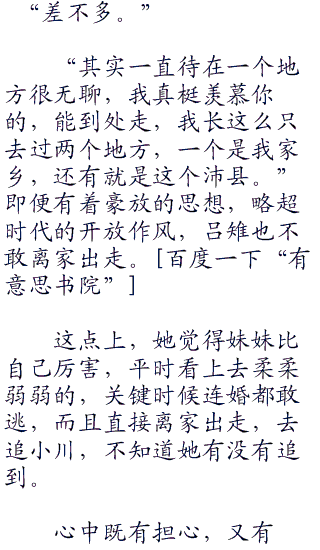 “差不多。”
“其实一直待在一个地
方很无聊，我真梃羡慕你
的，能到处走，我长这么只
去过两个地方，一个是我家
乡，还有就是这个沛县。”
即便有着豪放的思想，略超
时代的开放作风，吕雉也不
敢离家出走。[百度一下“有
意思书院”]
这点上，她觉得妹妹比
自己厉害，平时看上去柔柔
弱弱的，关键时候连婚都敢
逃，而且直接离家出走，去
追小川，不知道她有没有追
到。
心中既有担心，又有